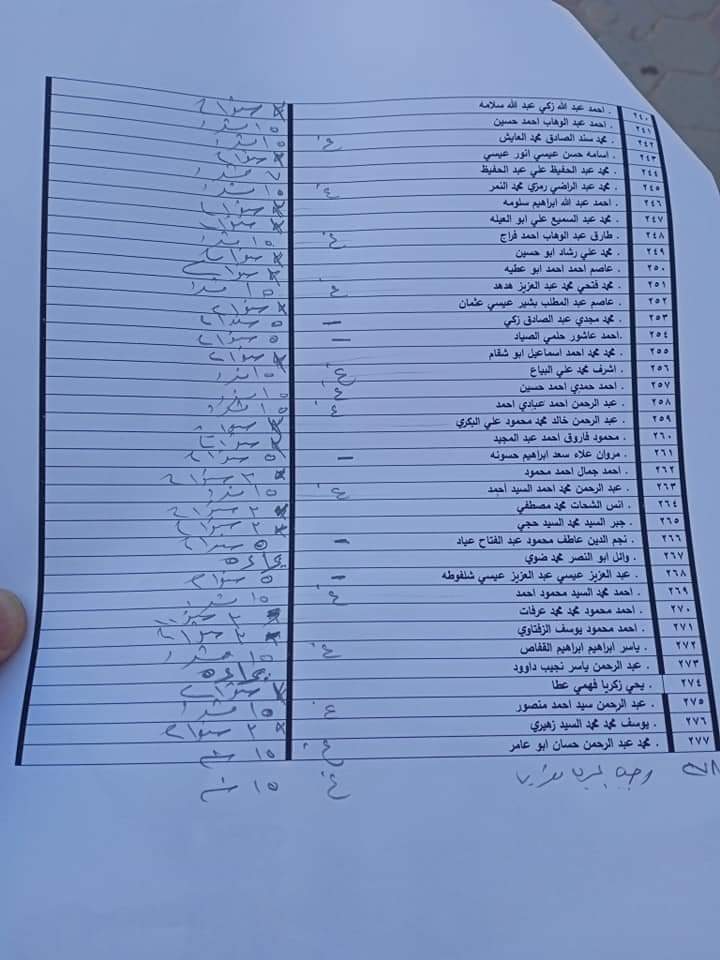 ٢٤٠ . احمد عبد الله زكي عبد الله سلامه
٢٤١ . احمد عبد الوهاب احمد حسين ١٥ سنه
٢٤٢ . محمد سند الصادق محمد العايش غ ١٥ سنه
٢٤٣ . اسامه حسن عيسي انور عيسي سنوات
٢٤٤ . محمد عبد الحفيظ علي عبد الحفيظ
٢٤٥ . محمد عبد الراضي رمزي محمد النمر غ ١٥ سنه
٢٤٦ . احمد عبد الله ابراهيم سلومه سنوات
٢٤٧ . محمد عبد السميع علي ابو العيله سنوات
٢٤٨ . طارق عبد الوهاب احمد فراج غ ١٥ سنه
٢٤٩ . محمد علي رشاد ابو حسين سنوات
٢٥٠ . عاصم احمد احمد ابو عطيه سنوات
٢٥١ . محمد فتحي محمد عبد العزيز هدهد غ ١٥ سنه
٢٥٢ . عاصم عبد المطلب بشير عيسي عثمان سنوات
٢٥٣ . محمد مجدي عبد الصادق زكي — ٥ سنوات
٢٥٤ .احمد عاشور حلمي الصياد — ٥ سنوات
٢٥٥ . محمد محمد احمد اسماعيل ابو شقام سنوات
٢٥٦ . اشرف محمد علي البياع غ ١٥ سنه
٢٥٧ . احمد حمدي احمد حسين غ ١٥ سنه
٢٥٨ . عبد الرحمن احمد عبادي احمد غ ١٥ سنه
٢٥٩ . عبد الرحمن خالد محمد محمود علي البكري سنوات
٢٦٠ . محمود فاروق احمد عبد المجيد سنوات
٢٦١ . مروان علاء سعد ابراهيم حسونه — ٥ سنوات
٢٦٢ . احمد جمال احمد محمود ٣ سنوات
٢٦٣ . عبد الرحمن محمد احمد السيد احمد غ ١٥ سنه
٢٦٤ . انس الشحات محمد مصطفي ٣ سنوات
٢٦٥ . جبر السيد محمد السيد حجي ٣ سنوات
٢٦٦ . نجم الدين عاطف محمود عبد الفتاح عياد — ٥ سنوات
٢٦٧ . وائل ابو النصر محمد ضوي براءه
٢٦٨ . عبد العزيز عيسي عبد العزيز عيسي شلفوطه — ٥ سنوات
٢٦٩ . احمد محمد السيد محمود احمد غ ١٥ سنه
٢٧٠ . احمد محمود محمد محمد عرفات ٣ سنوات
٢٧١ . احمد محمود يوسف الزفتاوي ٣ سنوات
٢٧٢ . ياسر ابراهيم ابراهيم القفاص غ ١٥ سنه
٢٧٣ . عبد الرحمن ياسر نجيب داوود براءه
٢٧٤ . يحي زكريا فهمي عطا سنوات
٢٧٥ . عبد الرحمن سيد احمد منصور غ ١٥ سنه
٢٧٦ . يوسف محمد محمد السيد زهيري ٣ سنوات
٢٧٧ . محمد عبد الرحمن حسان ابو عامر غ ١٥ سنه
٢٧٨ غ ١٥ سنه